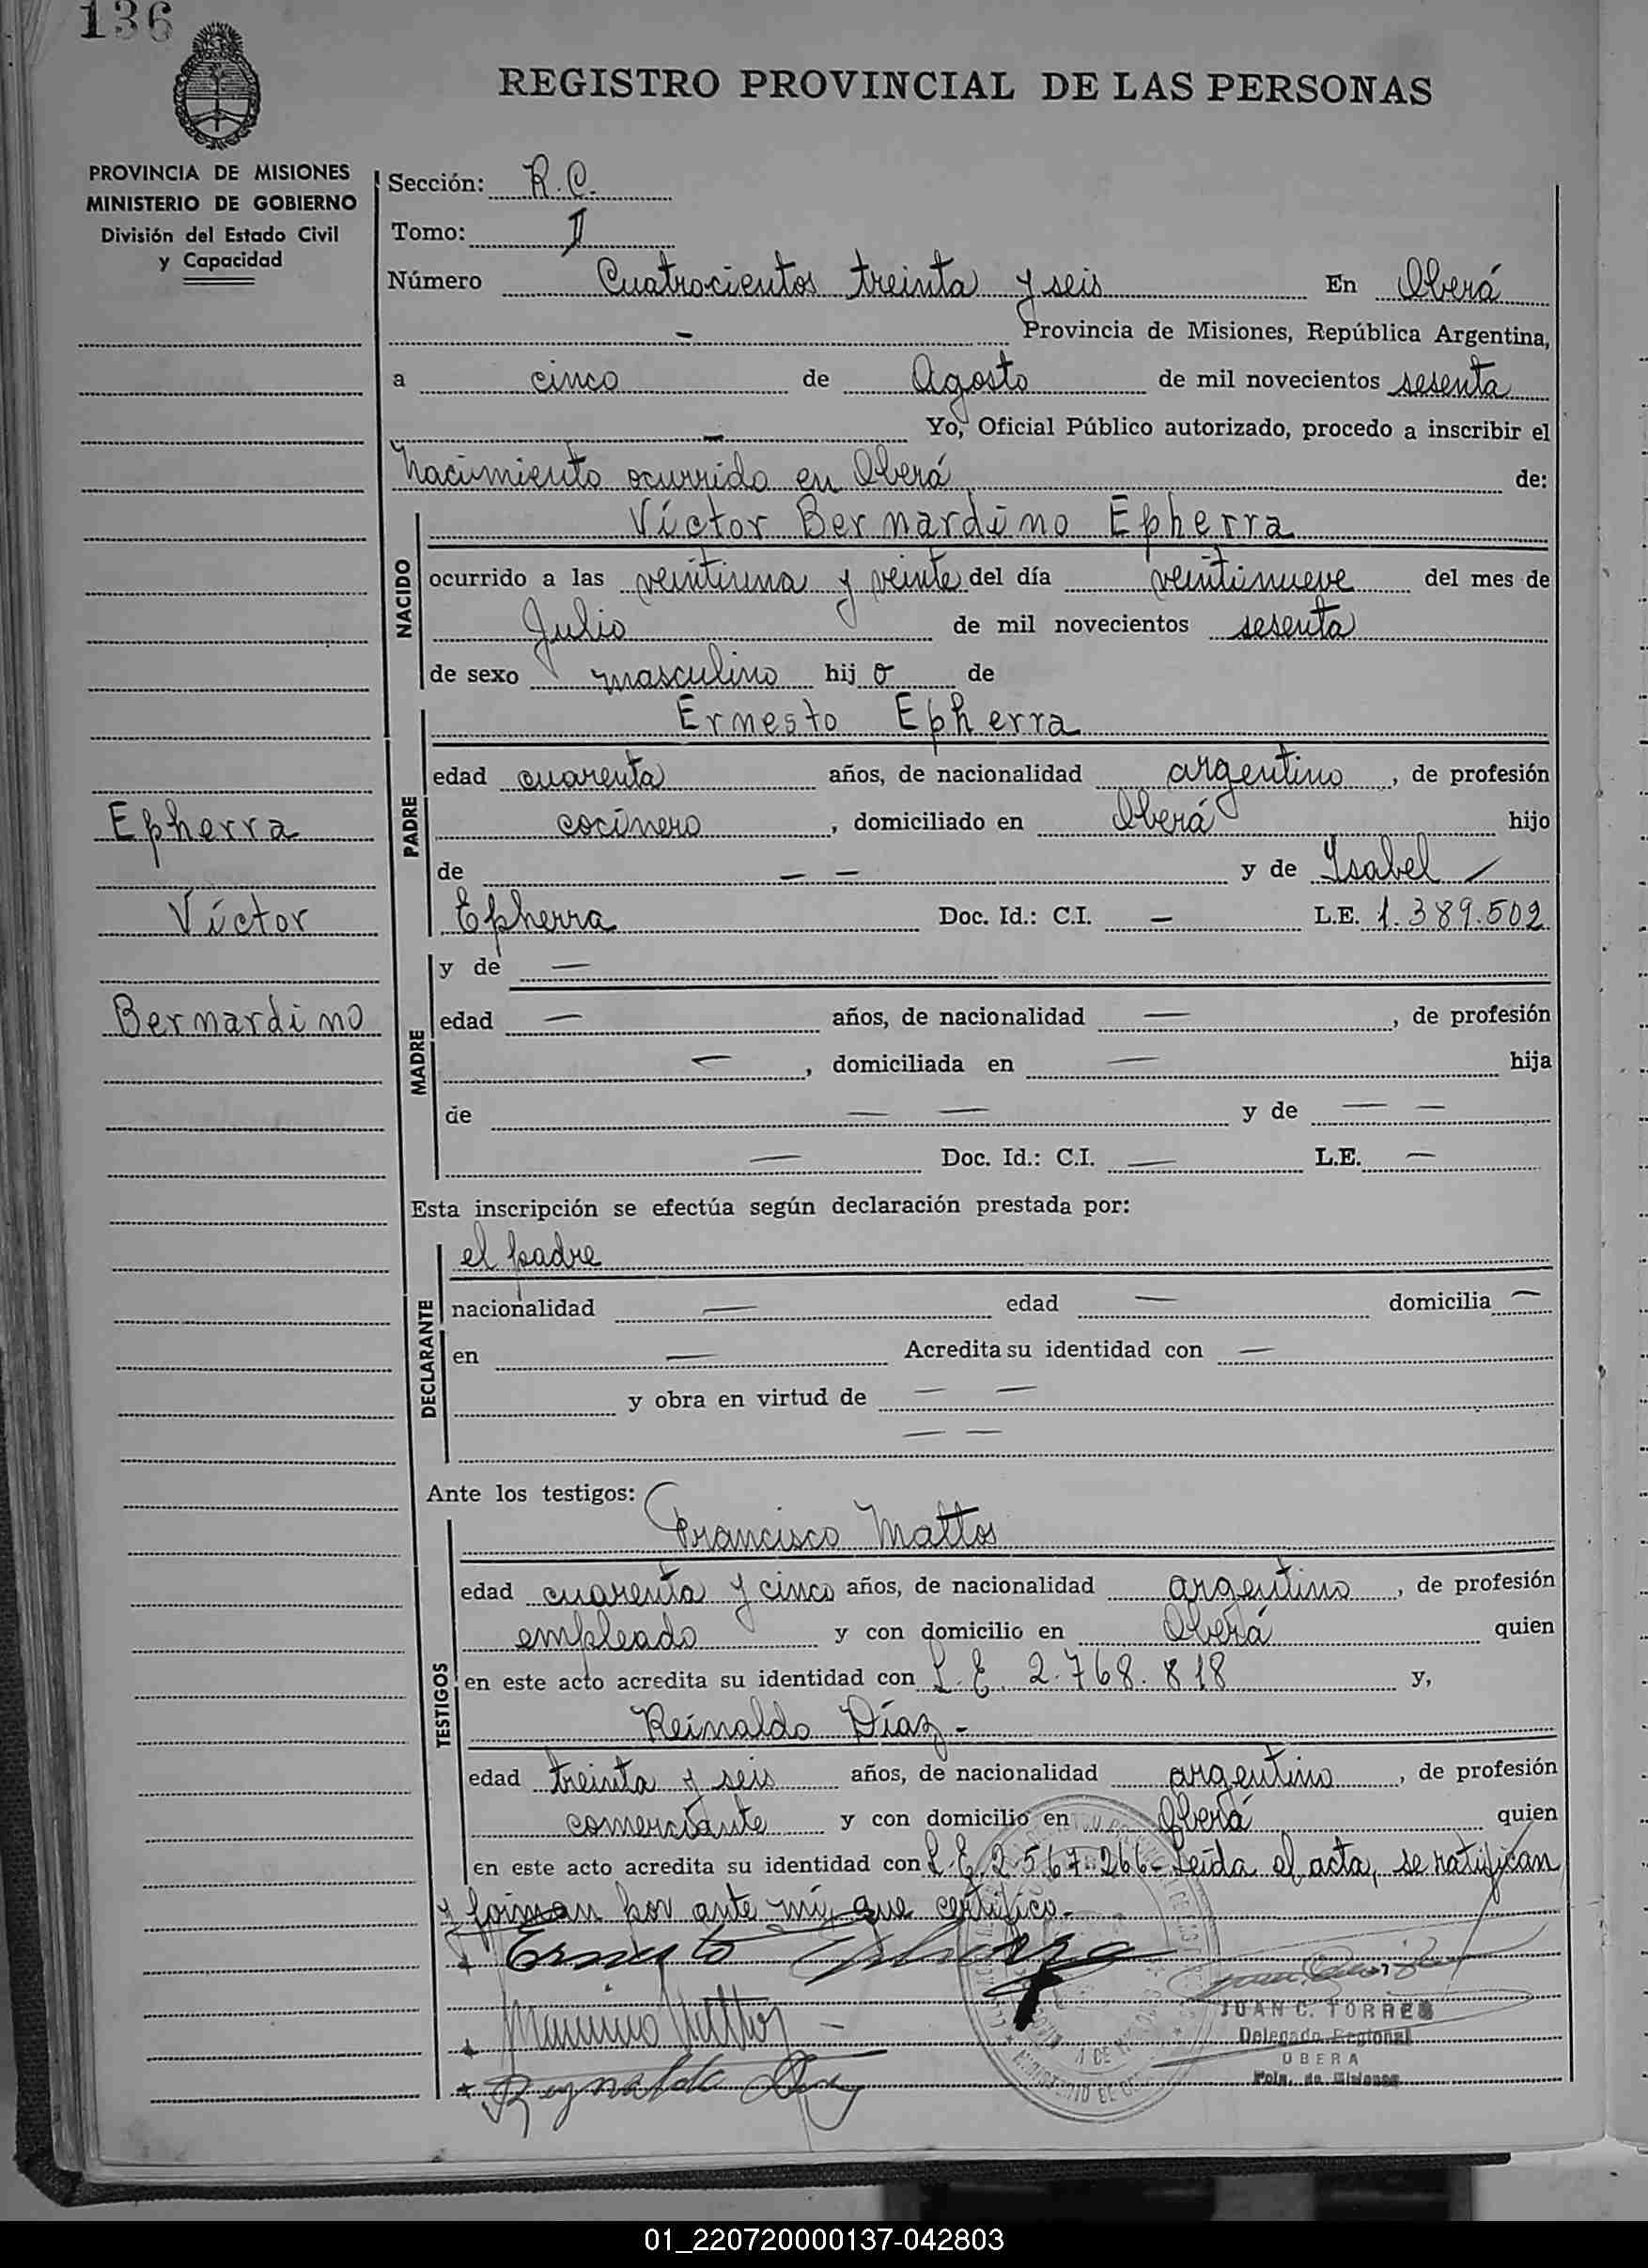 136
REGISTRO PROVINCIAL DE LAS PERSONAS
PROVINCIA DE MISIONES
MINISTERIO DE GOBIERNO
División del Estado Civil
y Capacidad
Sección: R.C.
Tomo: II
Número Cuatrocientos treinta y seis En Oberá
- Provincia de Misiones, República Argentina,
a cinco de Agosto de mil novecientos sesenta
- Yo, Oficial Público autorizado, procedo a inscribir el
nacimiento ocurrido en Oberá de:
NACIDO
Víctor Bernardino Epherra
ocurrido a las veintiuna y veinte del día veintinueve del mes de
Julio de mil novecientos sesenta
de sexo masculino hijo de
PADRE
Ernesto Epherra
edad cuarenta años, de nacionalidad argentino, de profesión
cocinero, domiciliado en Oberá hijo
de — — y de Ysabel —
Epherra Doc. Id.: C.I. — L.E. 1.389.502
Epherra
Víctor
Bernardino
MADRE
y de —
edad — años, de nacionalidad —, de profesión
—, domiciliada en — hija
de — — y de — —
— Doc. Id.: C.I. — L.E. —
Esta inscripción se efectúa según declaración prestada por:
DECLARANTE
el padre
nacionalidad — edad — domicilia —
en — Acredita su identidad con —
y obra en virtud de — —
— —
Ante los testigos:
TESTIGOS
Francisco Mattos
edad cuarenta y cinco años, de nacionalidad argentino, de profesión
empleado y con domicilio en Oberá quien
en este acto acredita su identidad con L.E. 2.768.818 y,
Reinaldo Díaz -
edad treinta y seis años, de nacionalidad argentino, de profesión
comerciante y con domicilio en Oberá quien
en este acto acredita su identidad con L.E. 2.567.266- Leída el acta, se ratifican
y firman por ante mí, que certifico.-
Ernesto Epherra
JUAN C. TORRES
Delegado Regional
OBERA
Pcia. de Misiones
Reynaldo Díaz
01_220720000137-042803